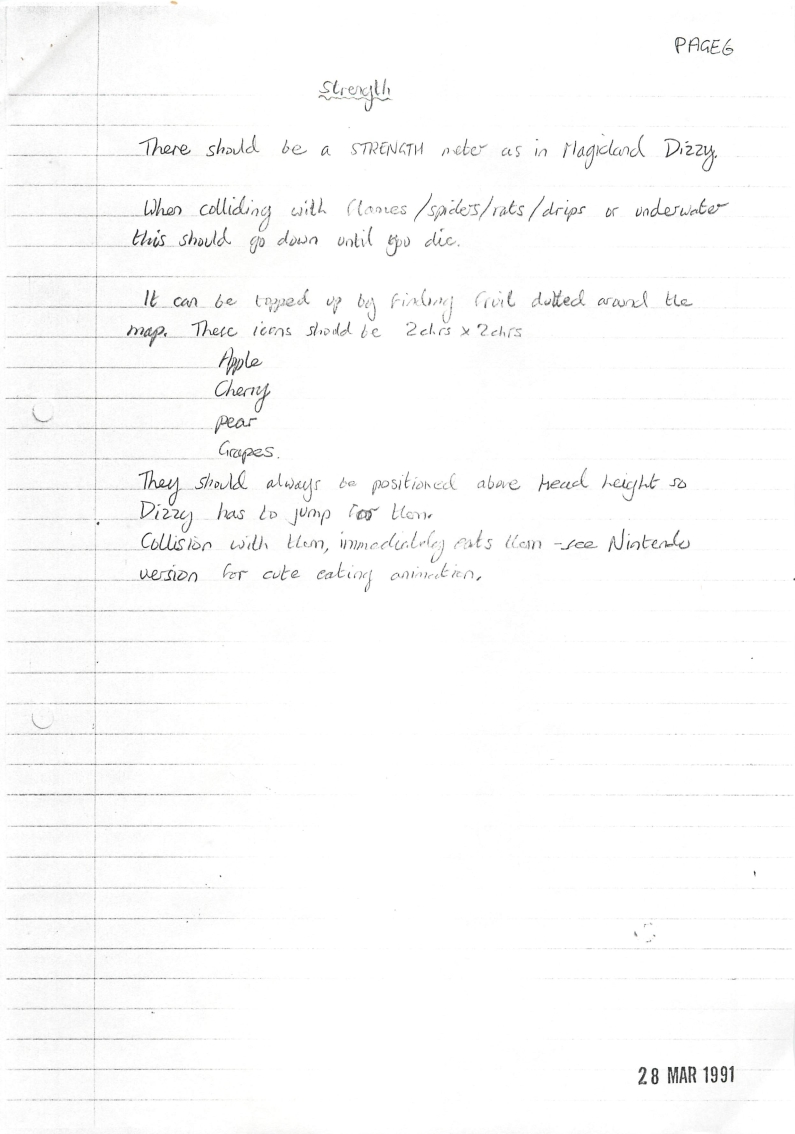 PAGE6
Strength
There should be a STRENGTH meter as in Magicland Dizzy.
When colliding with flames/spiders/rats/drips or underwater
this should go down until you die.
It can be topped up by finding fruit dotted around the
map. These icons should be 2chrs x 2chrs
Apple
Cherry
pear
Grapes.
They should always be positioned above head height so
Dizzy has to jump for them.
Collision with them, immediately eats them - see Nintendo
version for cute eating animation.
28 MAR 1991